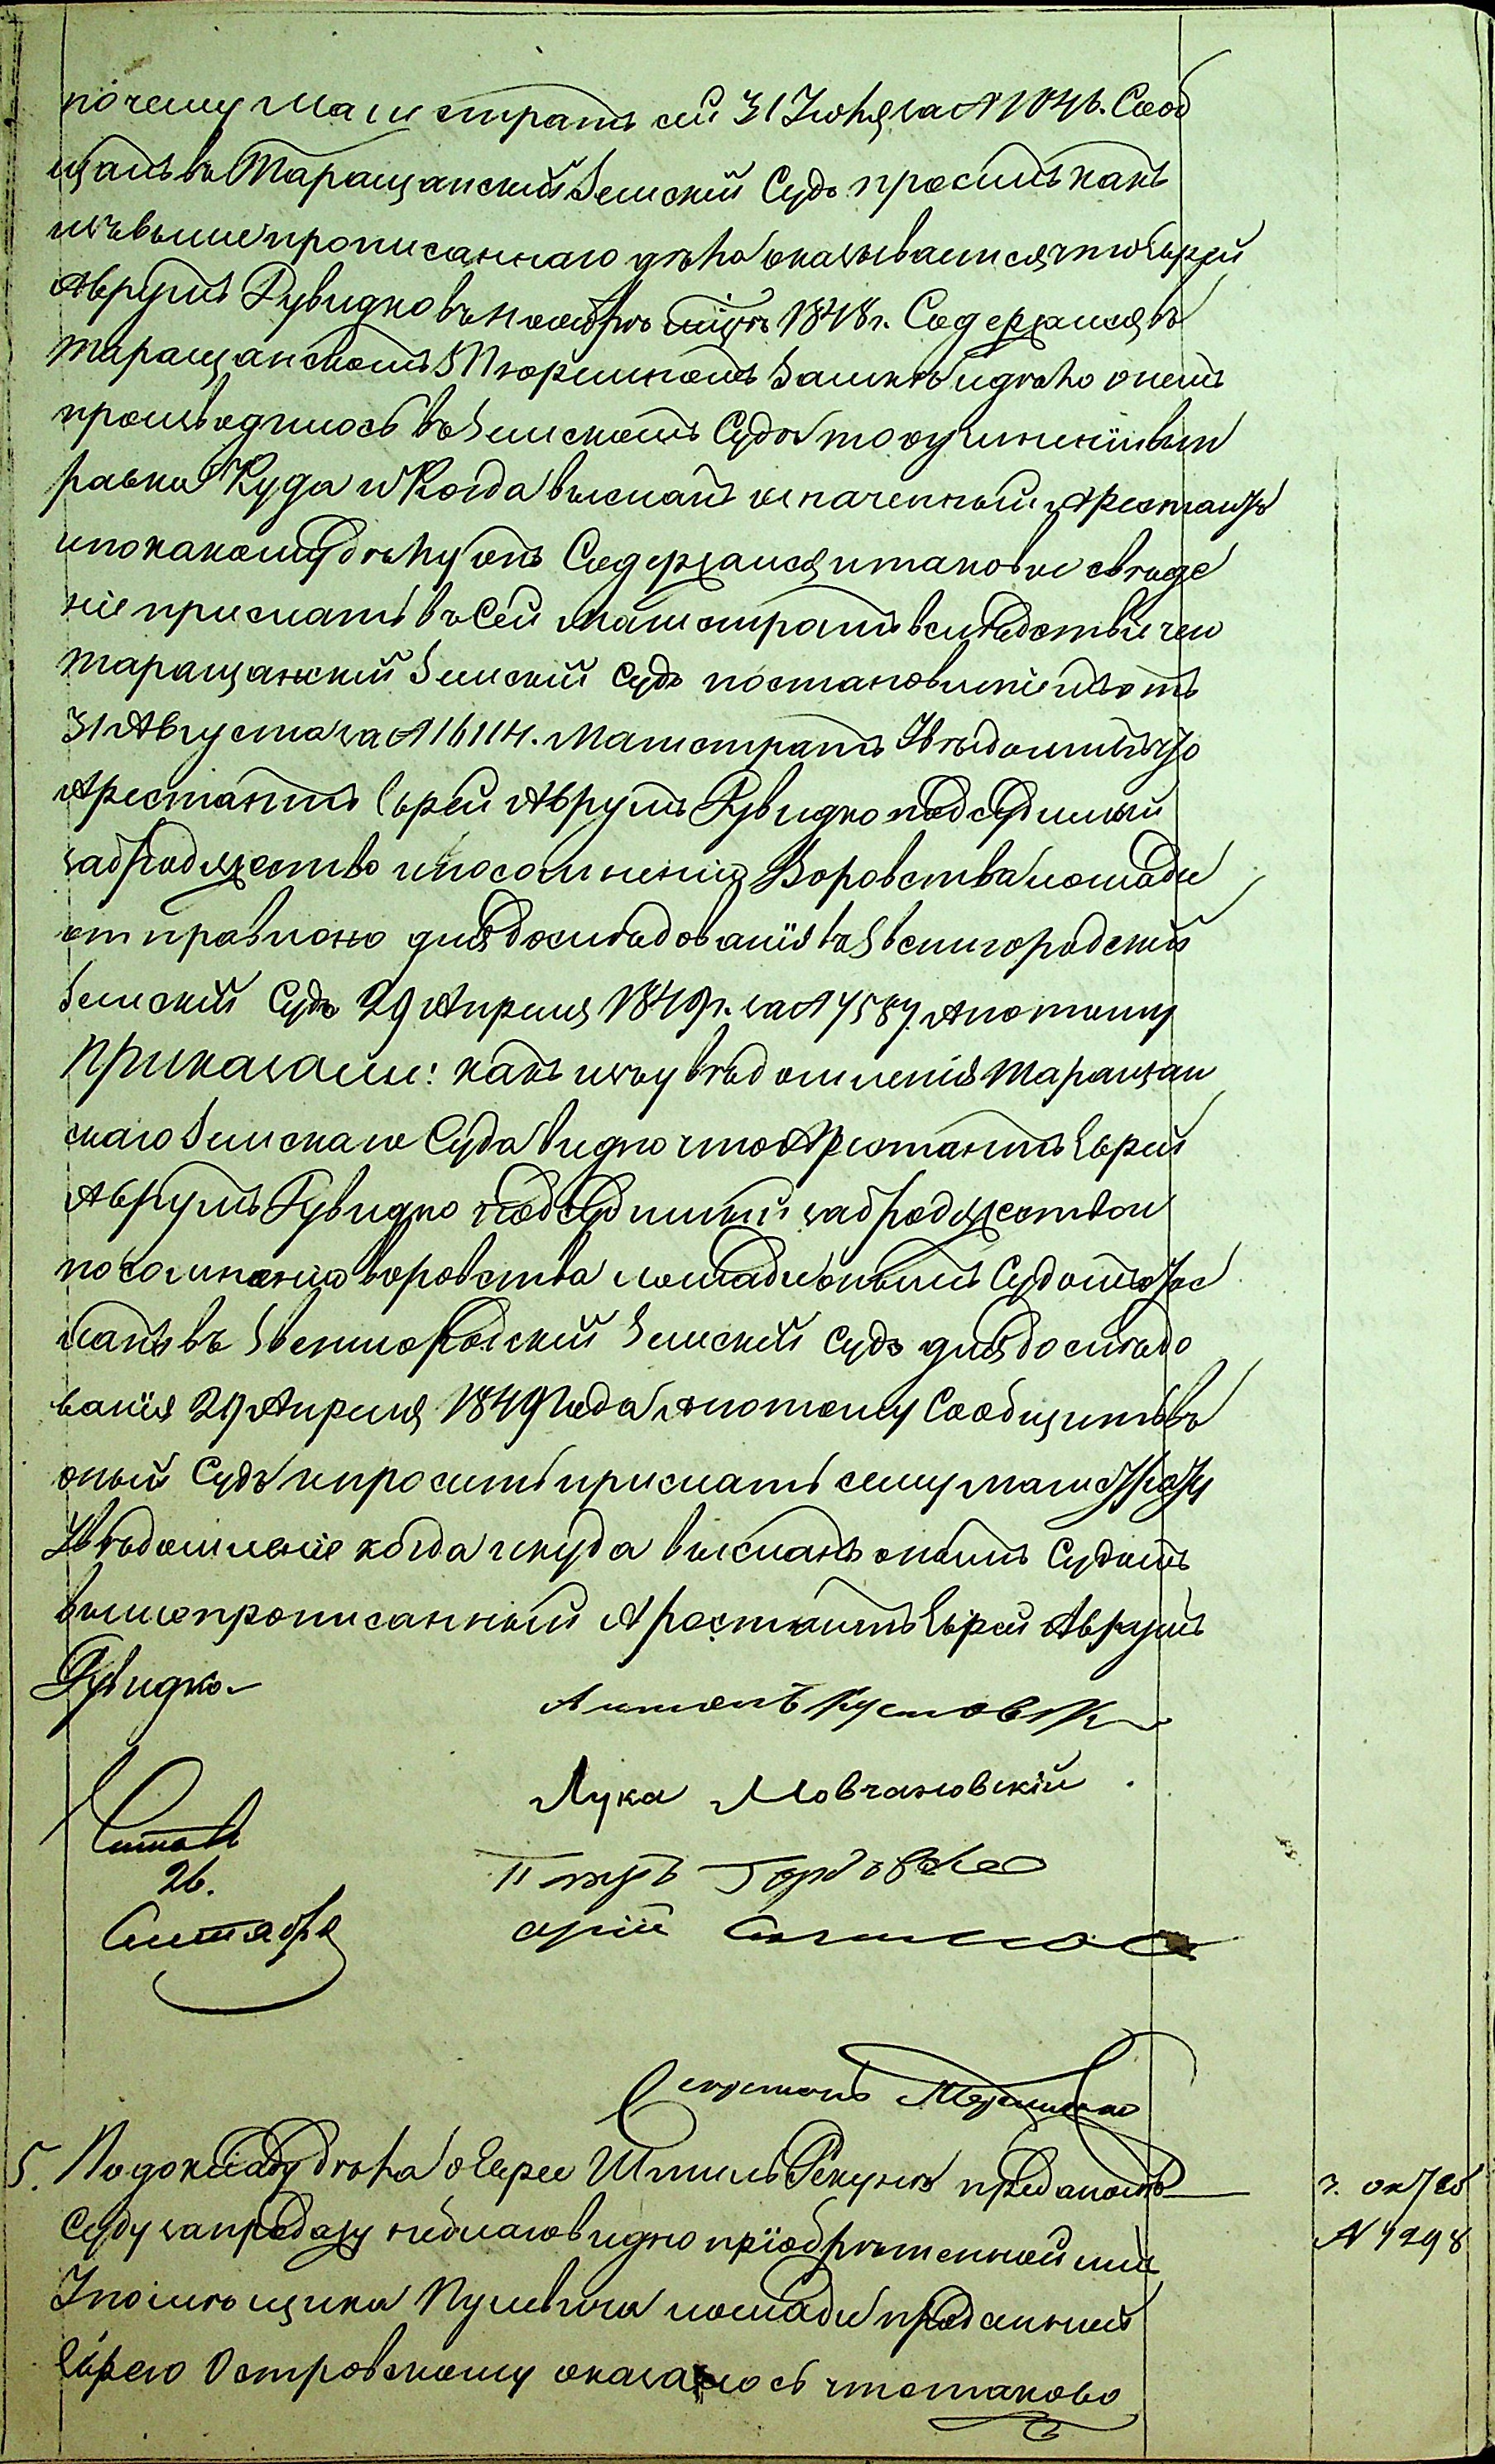 почему Магистратъ сей 31 Июля за № 1046. Сооб
щалъ въ Таращанскій Земскій Судъ просилъ какъ
изъ вышепрописаннаго дѣла оказывается что Еврей
Аврумъ Рувидко въ ноябрѣ мцѣ 1848 г. Содержался въ
Таращанскомъ Тюремномъ Замкѣ и дѣло о немъ
производилось въ Земскомъ Судѣ то о учиненіи вып
равки Куда и Когда высланъ означенный Арестантъ
и по какому дѣлу онъ Содержался и таковое сведе
ніе прислать въ Сей Магистратъ вслѣдствіе чего
Таращанскій Земскій Судъ постановленіемъ отъ
31 Августа за № 16114. Магистратъ Увѣдомилъ что
Арестантъ Еврей Аврумъ Рувидко подсудимый
за бродяжество и по сомненію Воровства лошади
отправлено для дослѣдованія въ Звенигородскій
Земскій Судъ 29 Апреля 1849 г. за № 7587. А потому
Приказали: какъ изъ увѣдомленія Таращан
скаго Земскаго Суда видно что Арестантъ Еврей
Аврумъ Рувидко подсудимый за бродяжество и
по сомненію воровства лошади онымъ Судомъ отос
ланъ въ Звенигородскій Земскій Судъ для дослѣдо
ванія 29 Апреля 1849 года а потому Сообщить въ
оный Судъ и просить прислать сему Магистрату
Увѣдомленіе когда и куда высланъ онымъ Судомъ
вышепрописанный Арестантъ Еврей Аврумъ
Рувидко.
Лука Мовчановскій
Читалъ
26.
Сентября
Петръ
Секретарь
5. По докладу дѣла о Еврее Шмиль Рекунѣ преданомъ
Суду за продажу неблаговидно пріобрѣтенной имъ
У помѣщика лошади проданной
Еврею Островскому оказалось что таково
3. октяб
№ 1298